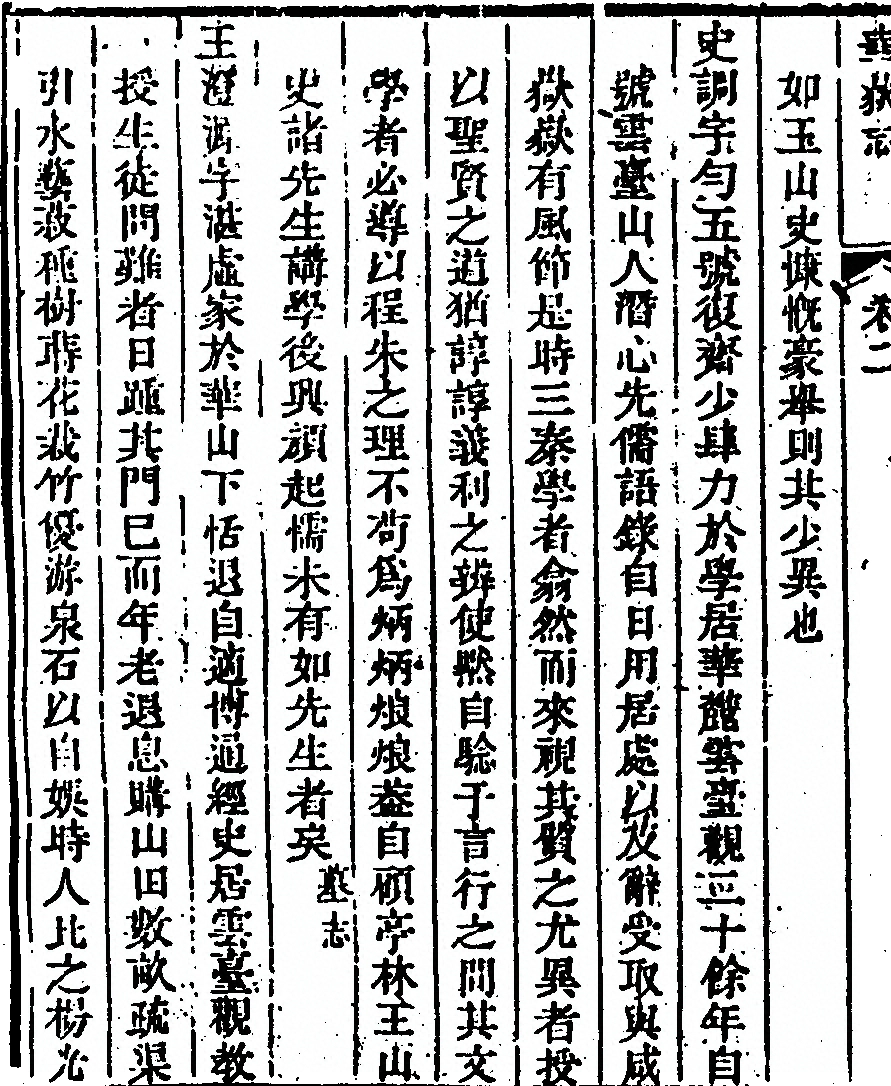 華嶽志 卷二
如玉山史慷慨豪舉則其少異也
史調字勻五號復齋少肆力於學居華麓雲臺觀三十餘年自
號雲臺山人潛心先儒語錄自日用居處以及辭受取與咸
嶽嶽有風節是時三秦學者翕然而來視其質之尤異者授
以聖賢之道猶諄諄義利之辨使默自驗于言行之間其文
學者必導以程朱之理不苟為炳炳烺烺蓋自顧亭林王山
史諸先生講學後興頑起懦未有如先生者矣墓志
王澄 字湛虛家於華山下恬退自適博通經史居雲臺觀教
授生徒問難者日踵其門已而年老退息購山田數畝疏渠
引水藝蔬種樹蒔花栽竹優游泉石以自娛時人比之楊光